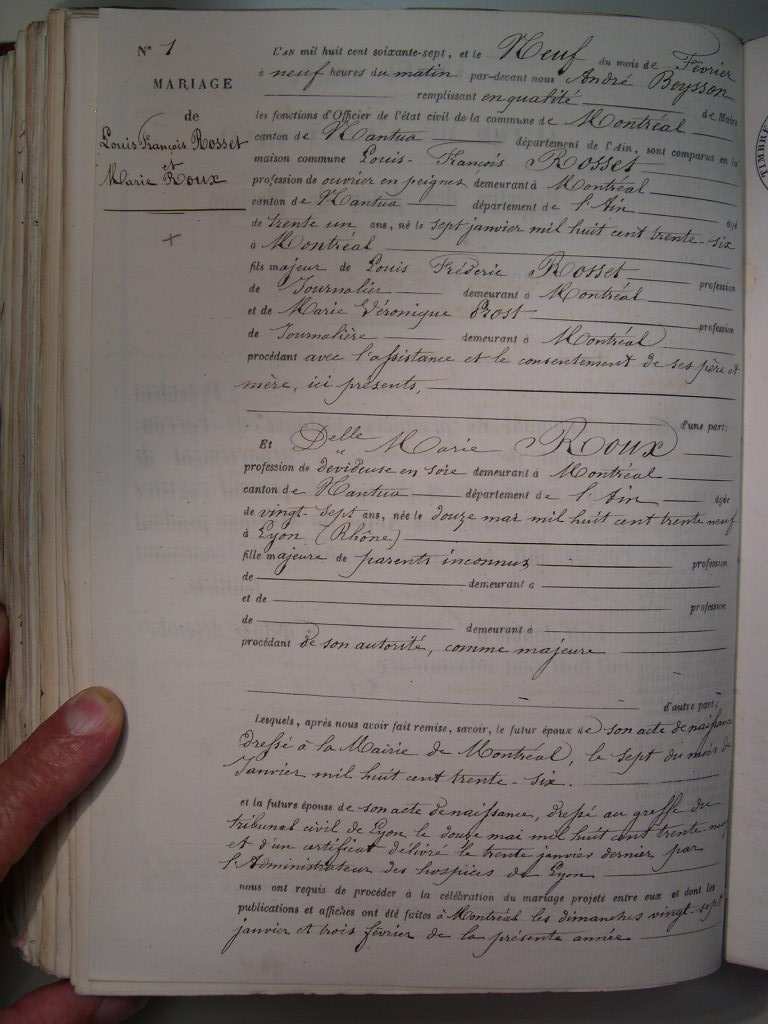 N° 1
MARIAGE
de
Louis François Rosset
et
Marie Roux
L'AN mil huit cent soixante-sept, et le Neuf du mois de Février
à neuf heures du matin par-devant nous André Beysson
remplissant en qualité de Maire
les fonctions d'Officier de l'état civil de la commune de Montréal
canton de Nantua département de l'Ain, sont comparus en la
maison commune Louis-François Rosset
profession de ouvrier en peignes demeurant à Montréal
canton de Nantua département de l'Ain âgé
de trente un ans, né le sept janvier mil huit cent trente-six
à Montréal
fils majeur de Louis Fréderic Rosset profession
de Journalier demeurant à Montréal
et de Marie Véronique Prost profession
de Journalière demeurant à Montréal
procédant avec l'assistance et le consentement de ses père et
mère, ici présents,
d'une part;
Et Delle Marie Roux
profession de dévideuse en soie demeurant à Montréal
canton de Nantua département de l'Ain âgée
de vingt-sept ans, née le douze mai mil huit cent trente neuf
à Lyon (Rhône)
fille majeure de parents inconnus profession
de demeurant à
et de profession
de demeurant à
procédant de son autorité, comme majeure
d'autre part;
Lesquels, après nous avoir fait remise, savoir, le futur époux de son acte de naissance
dressé à la Mairie de Montréal, le sept du mois de
Janvier mil huit cent trente-six.
et la future épouse de son acte de naissance, dressé au greffe du
tribunal civil de Lyon le douze mai mil huit cent trente neuf
et d'un certificat délivré le trente janvier dernier par
l'Administrateur des hospices de Lyon
nous ont requis de procéder à la célébration du mariage projeté entre eux et dont les
publications et affiches ont été faites à Montréal les dimanches vingt-sept
janvier et trois février de la présente année
TIMBRE